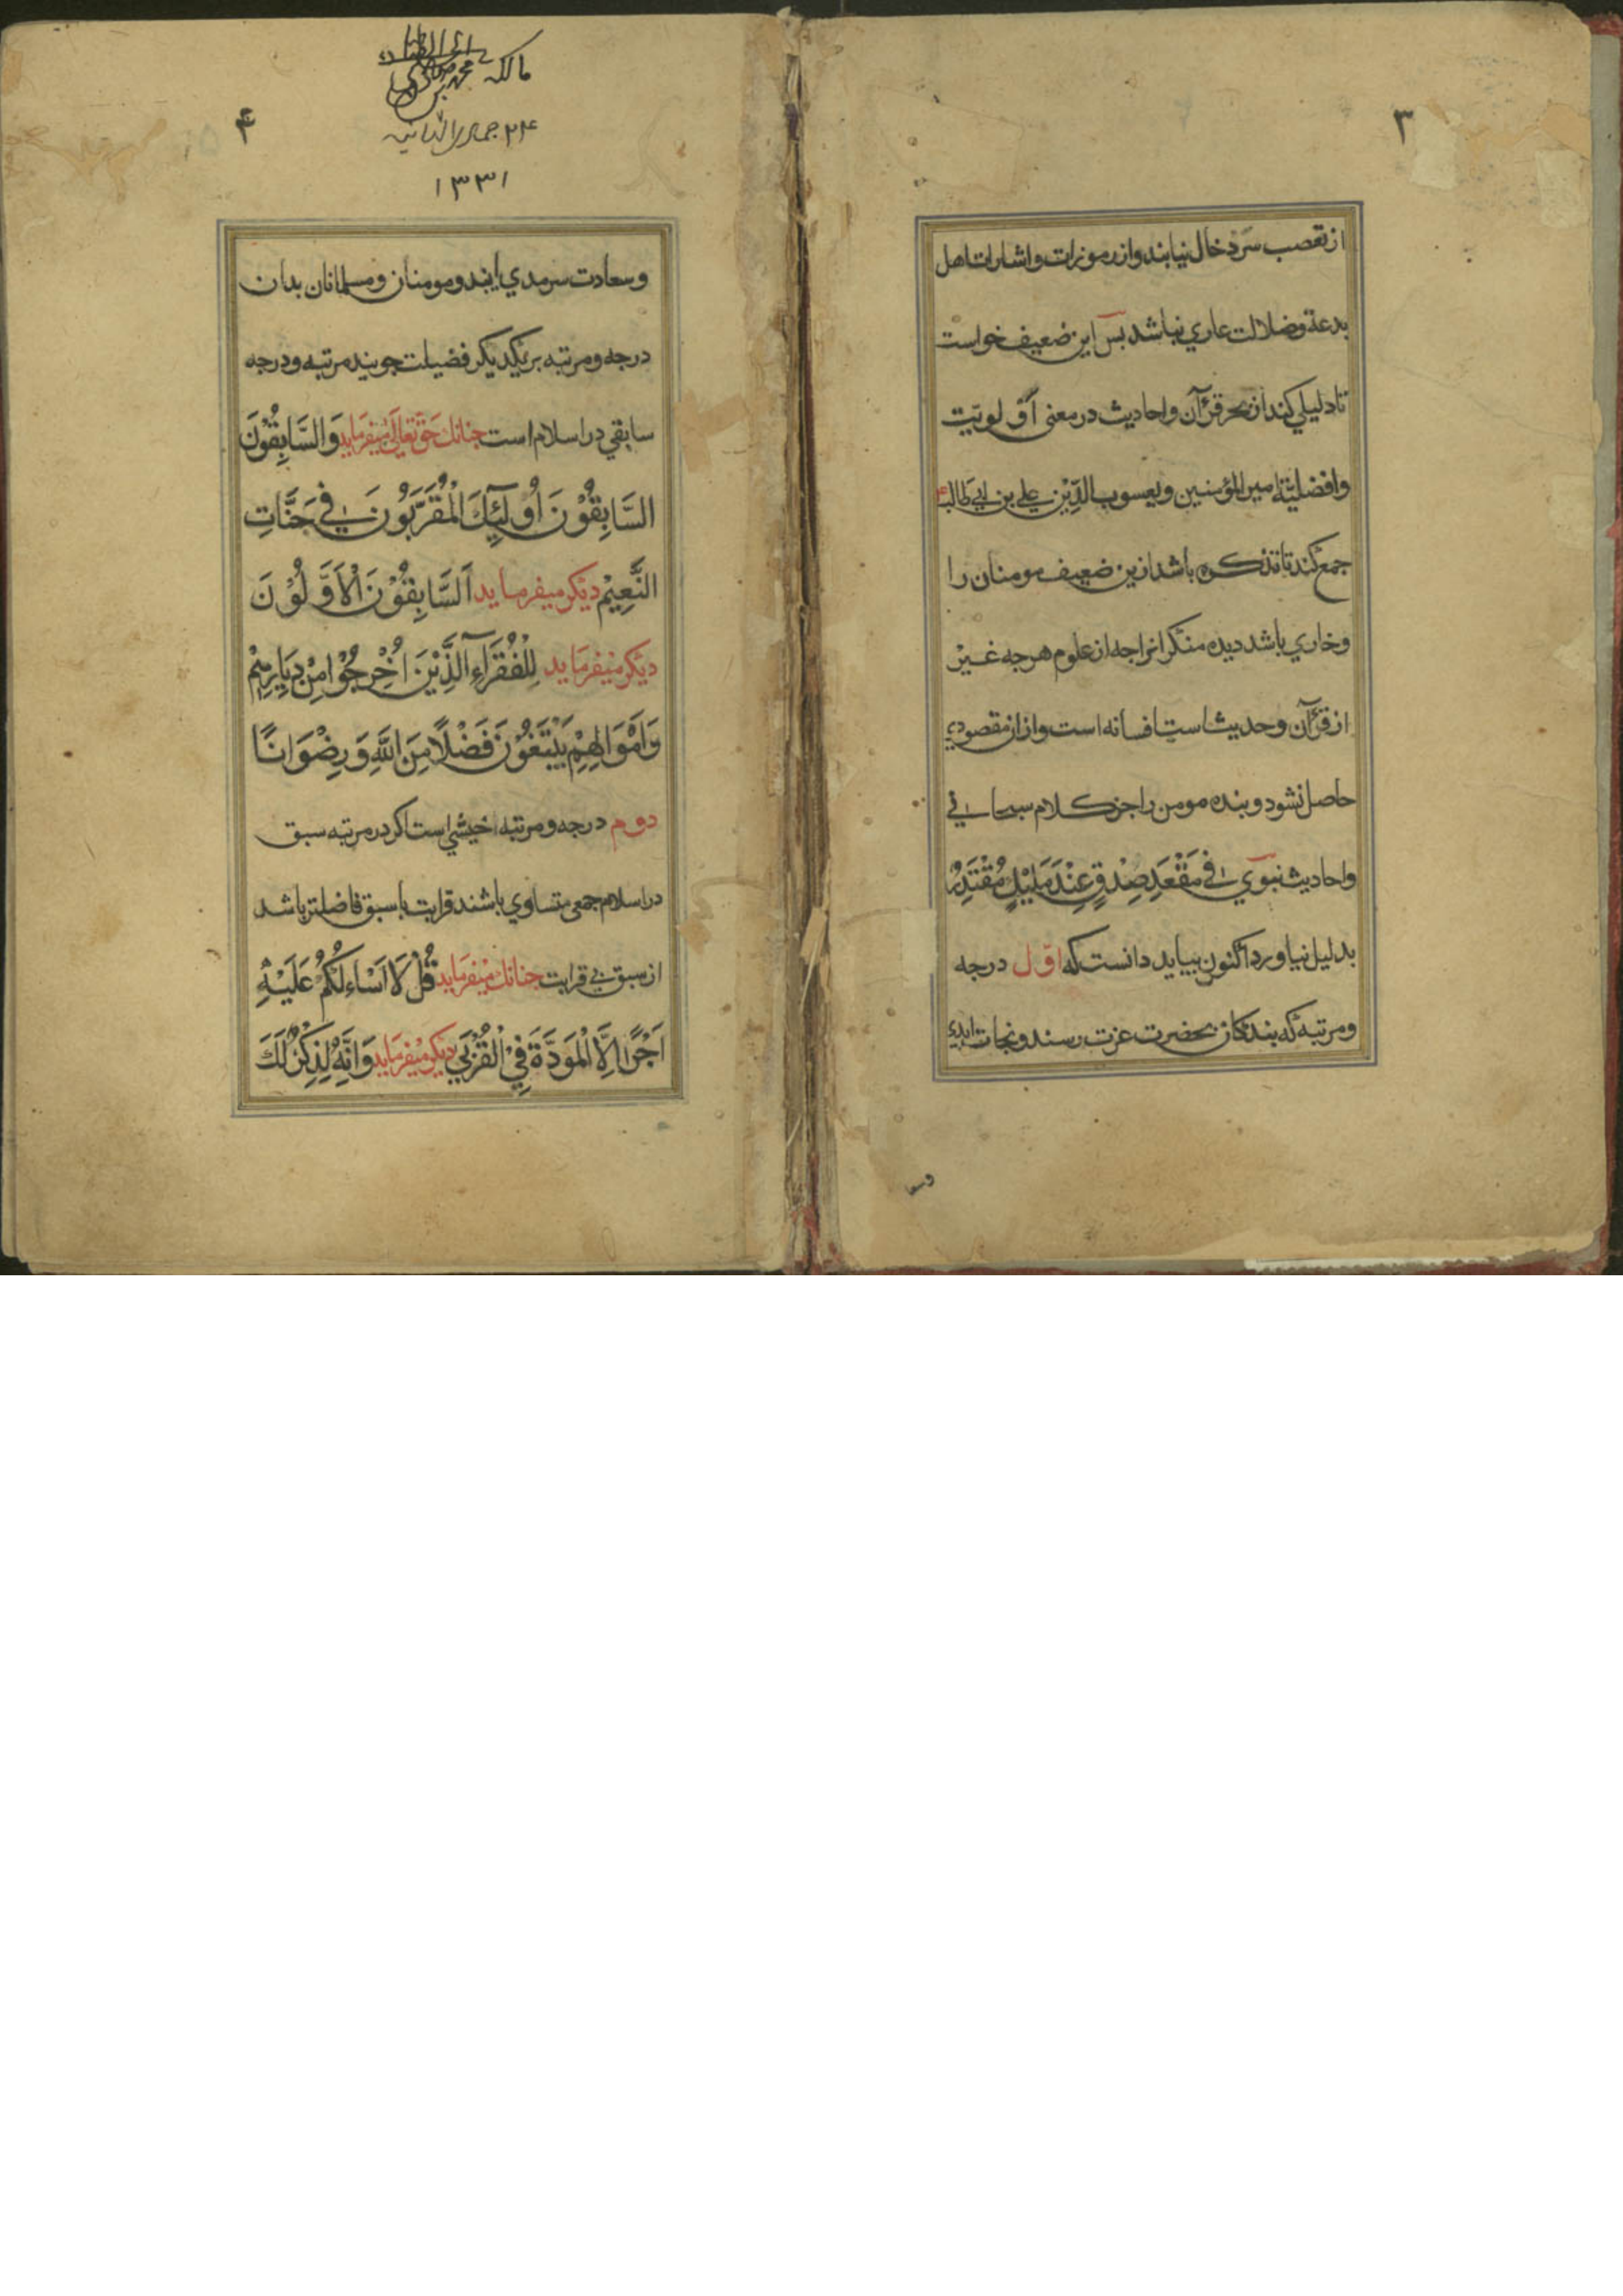 ٣
از تعصب سر دخال نیابند و از رموزات و اشارات اهل
بدعة و ضلالت عاري نباشد بس این ضعیف خواست
تا دلیلي کند از بحر قرآن و احادیث در معنی اوّلویّت
وافضلیّة امیر المؤمنین ویعسوب الدّیْن علي بن ابي طالب
جمع کند تا تذکره باشد ازین ضعیف مومنان را
وخاري باشد دیده منکرانرا جه از علوم هرجه غیْر
از قرآن و حدیث است افسانه است و ازان مقصودي
حاصل نشود و بنده مومن را جز کلام سبحاني
واحادیث نبوي في مَقْعَدِ صِدْقٍ عِنْدَ مَلیْكٍ مُقْتَدِرْ
بدلیل نیاورد اکنون بباید دانست که اوّل درجه
ومرتبهٔ که بندکان بحضرت عزت رسند ونجات ابدي
وسعا
۴
مالکه محمد بن
۲۴ جمادي الثانیه
۱۳۳۱
وسعادت سرمدي یابند و مومنان و مسلمانان بدان
درجه و مرتبه بریکدیکر فضیلت جویند مرتبه و درجه
سابقي در اسلام است جنانك حَقّ تَعَالَی میْفرماید وَالسَّابِقُوْنَ
السَّابِقُوْنَ اُولٰئِكَ الْمُقَرَّبُوْنَ فِي جَنَّاتِ
النَّعِیْمِ دیکر میفرماید اَلسَّابِقُوْنَ الْاَوَّلُوْنَ
دیکر میْفرمَاید لِلْفُقَرَآءِ الَّذِیْنَ اُخْرِجُوْا مِنْ دِیَارِهِمْ
وَاَمْوَالِهِمْ یَبْتَغُوْنَ فَضْلًا مِنَ اللّٰهِ وَرِضْوَانًا
دوم درجه و مرتبه خیشي است اکر در مرتبه سبق
در اسلام جمعی متساوي باشند قرابت با سبق فاضلتر باشد
از سبق بي قرابت جنانك میْفرمَاید قُلْ لَا اَسْاءَلُکُمْ عَلَیْهِ
اَجْرًا اِلَّا الْمَوَدَّةَ فِيْ الْقُرْبَي دیکر میْفرمَاید وَاِنَّهُ لَذِکْرٌ لَكَ